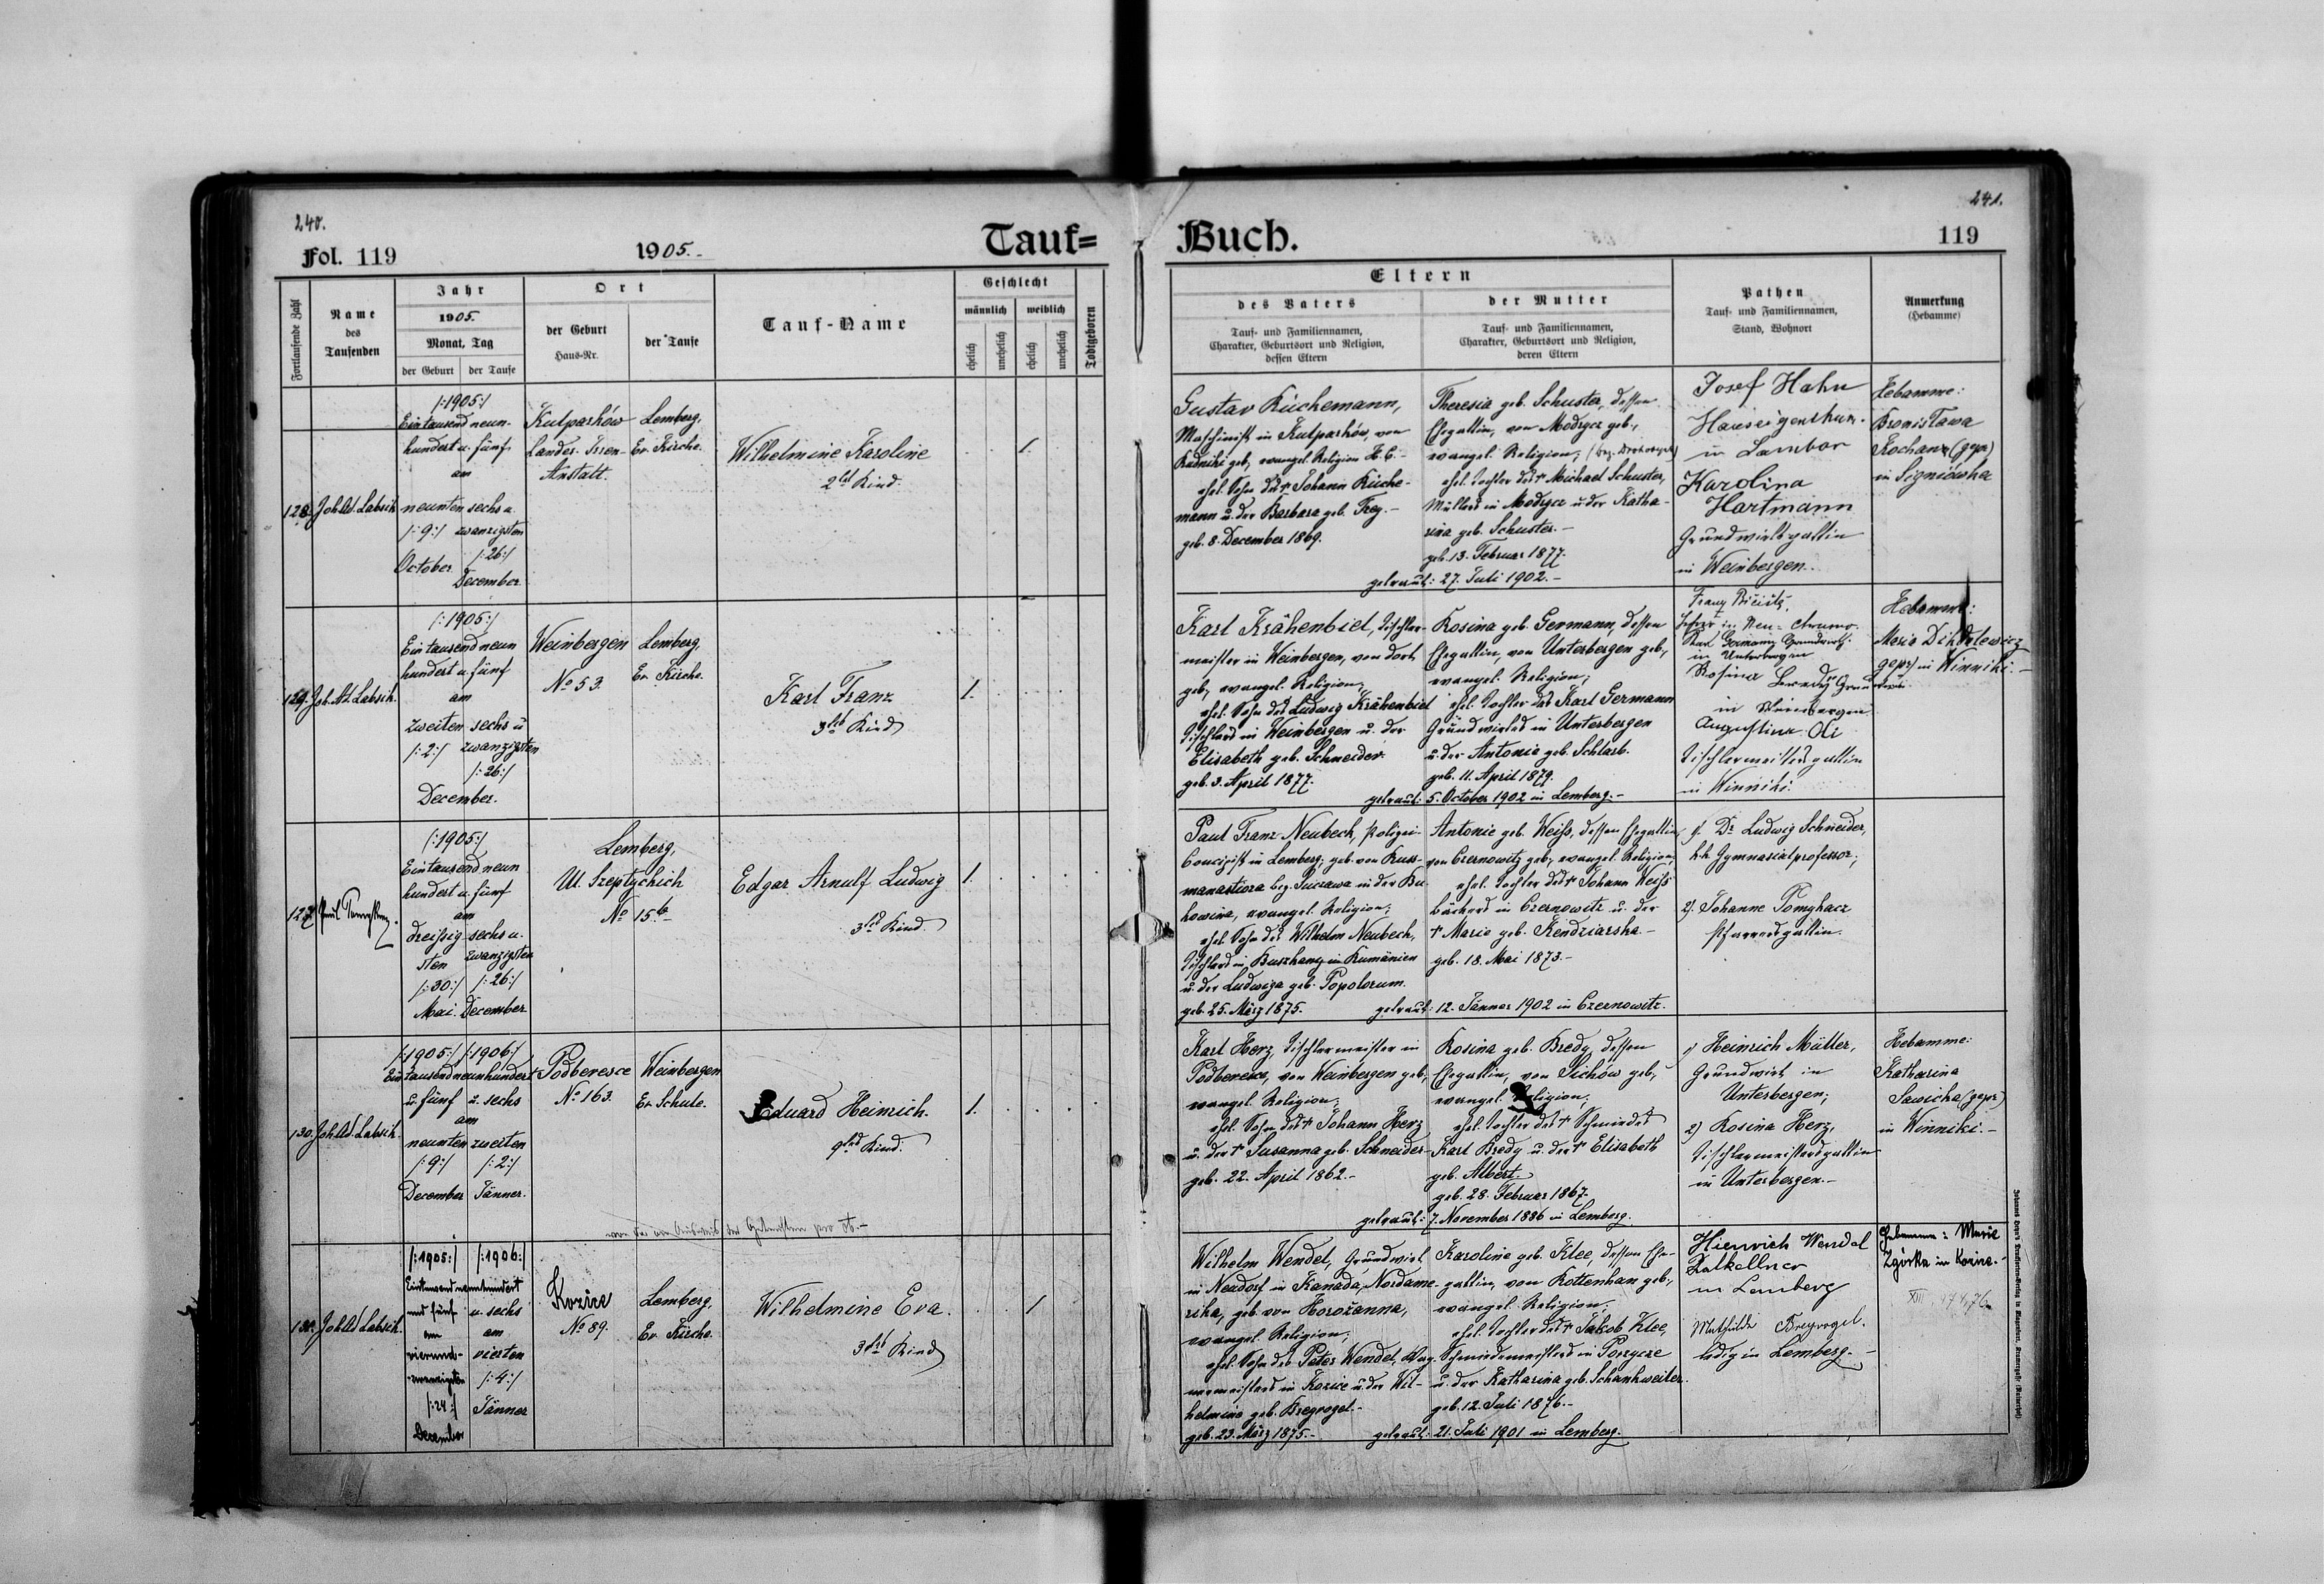 240.
Fol. 119
1905.-
Tauf=
Fortlaufende Zahl
Name
des
Taufenden
Jahr
1905.
Monat, Tag
der Geburt
der Taufe
Ort
der Geburt
Haus-Nr.
der Taufe
Tauf-Name
Geschlecht
männlich
weiblich
ehelich
unehelich
ehelich
unehelich
Todtgeboren
128.
Joh. Ad. Labsik
/:1905:/
Ein tausend neun-
hundert u. fünf
am
neunten sechs u.
/:9:/ zwanzigsten
October /:26:/
December
Kulparków
Landes-Irren-
Anstalt.
Lemberg,
Ev. Kirche.
Wilhelmine Karoline
2tes Kind.
1.
129.
Joh. Ad. Labsik.
/:1905:/
Ein tausend neun
hundert u. fünf
am
zweiten sechs u
/:2:/ zwanzigsten
/:26:/
December.
Weinbergen
No 53.
Lemberg,
Ev. Kirche.
Karl Franz
3tes Kind
1.
/:1905:/
Ein tausend neun
hundert u. fünf
am
dreißig- sechs u.
sten zwanzigsten
/:30:/ /:26:/
Mai. December
Lemberg,
Ul. Szeptyckich
No 15.b
Edgar Arnulf Ludwig
3tes Kind.
1.
130.
Joh. Ad. Labsik.
/:1905:/ /:1906:/
Ein tausend neunhundert
u. fünf u. sechs
am
neunten zweiten
/:9:/ /:2:/
December Jänner.
Podberesce
No 163.
Weinbergen
Ev. Schule.
Eduard Heinrich.
9tes Kind.
1.
Joh. Ad. Labsik.
/:1905:/ /:1906:/
Eintausend neunhundert
und fünf u. sechs
am am
vierund- vierten
zwanzigsten /:4:/
/:24:/ Jänner
December
Kozice
No 89.
Lemberg,
Ev. Kirche.
Wilhelmine Eva.
3tes Kind
1
241.
Buch.
119
Eltern
des Vaters
Tauf- und Familiennamen,
Charakter, Geburtsort und Religion,
dessen Eltern
der Mutter
Tauf- und Familiennamen,
Charakter, Geburtsort und Religion,
deren Eltern
Pathen
Tauf- und Familiennamen,
Stand, Wohnort
Anmerkung
(Hebamme)
Gustav Küchemann,
Maschinist in Kulparków, von
geb, evangel. Religion H. C.-
ehel. Sohn des † Johann Küche-
mann u. der Barbara geb. Frey.-
geb. 8. December 1869.
Theresia geb. Schuster, dessen
Ehegattin, von Modrycz geb,
evangel. Religion;
ehel. Tochter des † Michael Schuster,
Müllers in Modrycz u. der Katha-
rina geb. Schuster.-
geb. 13. Februar 1877.
getraut: 27. Juli 1902.-
Josef Hahn
Hauseigenthüm.
in Sambor
Karolina
Hartmann
Grundwirtsgattin
in Weinbergen.
Hebamme:
Bronisława
Kochan (gepr.)
in Signiówka
Karl Krähenbiel, Tischler-
meister in Weinbergen, von dort
geb, evangel. Religion;
ehel. Sohn des Ludwig Krähenbiel
Tischlers in Weinbergen u. der
Elisabeth geb. Schneider.
geb. 3. April 1877.
Rosina geb. Germann, dessen
Ehegattin, von Unterbergen geb,
evangel. Religion;
ehel. Tochter des Karl Germann
Grundwirtes in Unterbergen
u. der Antonie geb. Schlarb.
geb. 11. April 1879.
getraut: 5. October 1902 in Lemberg.-
Franz
Karl Germann Grundwirth
in Unterbergen
Rosina Bredy
in Weinbergen
Augustina
Tischlermeistersgattin
in Winniki.
Hebamme:
Maria
gepr.) in Winniki.-
Paul Franz Neubech, Polizei-
Concipist in Lemberg; geb. von Kuss-
manastiora bez. Suczawa in der Bu-
kowina, evangel. Religion;
ehel. Sohn des Wilhelm Neubech,
Tischlers in in Rumänien
u. der Ludwiga geb. Popolorum.
geb. 25. März 1875.
Antonie geb. Weiss, dessen Ehegattin
von Czernowitz geb, evangel. Religion;
ehel. Tochter des † Johann Weiss
Bäckers in Czernowitz u. der
† Marie geb. Kendziarska.-
geb. 18. Mai 1873.-
getraut: 12. Jänner 1902 in Czernowitz.
1. Dr. Ludwig Schneider,
k.k. Gymnasialprofessor;
2. Johanne Pomykacz
Pfarrersgattin.
Karl Herz, Tischlermeister in
Podberesce, von Weinbergen geb,
evangel. Religion;
ehel. Sohn des † Johann Herz
u. der † Susanna geb. Schneider
geb. 22. April 1862.-
Rosina geb. Bredy, dessen
Ehegattin, von Sichów geb,
evangel. Religion;
ehel. Tochter des † Schmiedes
Karl Bredy u. der † Elisabeth
geb. Albert.
geb. 28. Februar 1867.
getraut: 7. November 1886 in Lemberg.
1) Heinrich Müller,
Grundwirt in
Unterbergen;
2) Rosina Herz,
Tischlermeistersgattin
in Unterbergen.-
Hebamme:
Katharina
Sawicka (gepr.)
in Winniki.-
Wilhelm Wendel, Grundwirt
in Neudorf in Kanada, Nordame-
rika, geb. von Horožanna,
evangel. Religion;
ehel. Sohn des Peter Wendel, Wag-
nermeisters in Kozice u. der Wil-
helmine geb. Bregvogel.-
geb. 23. März 1875.-
Karoline geb. Klee, dessen Ehe-
gattin, von Rottenhan geb,
evangel. Religion;
ehel. Tochter des † Jakob Klee,
Schmiedemeisters in Porzycze
u. der Katharina geb. Schankweiler.
geb. 12. Juli 1876.-
getraut: 21. Juli 1901 in Lemberg.
Hienrich Wendel
in Lemberg
Mathilde Bregvogel.
ledig in Lemberg.-
Hebamme: Marie
Zgórka in Kozice.-